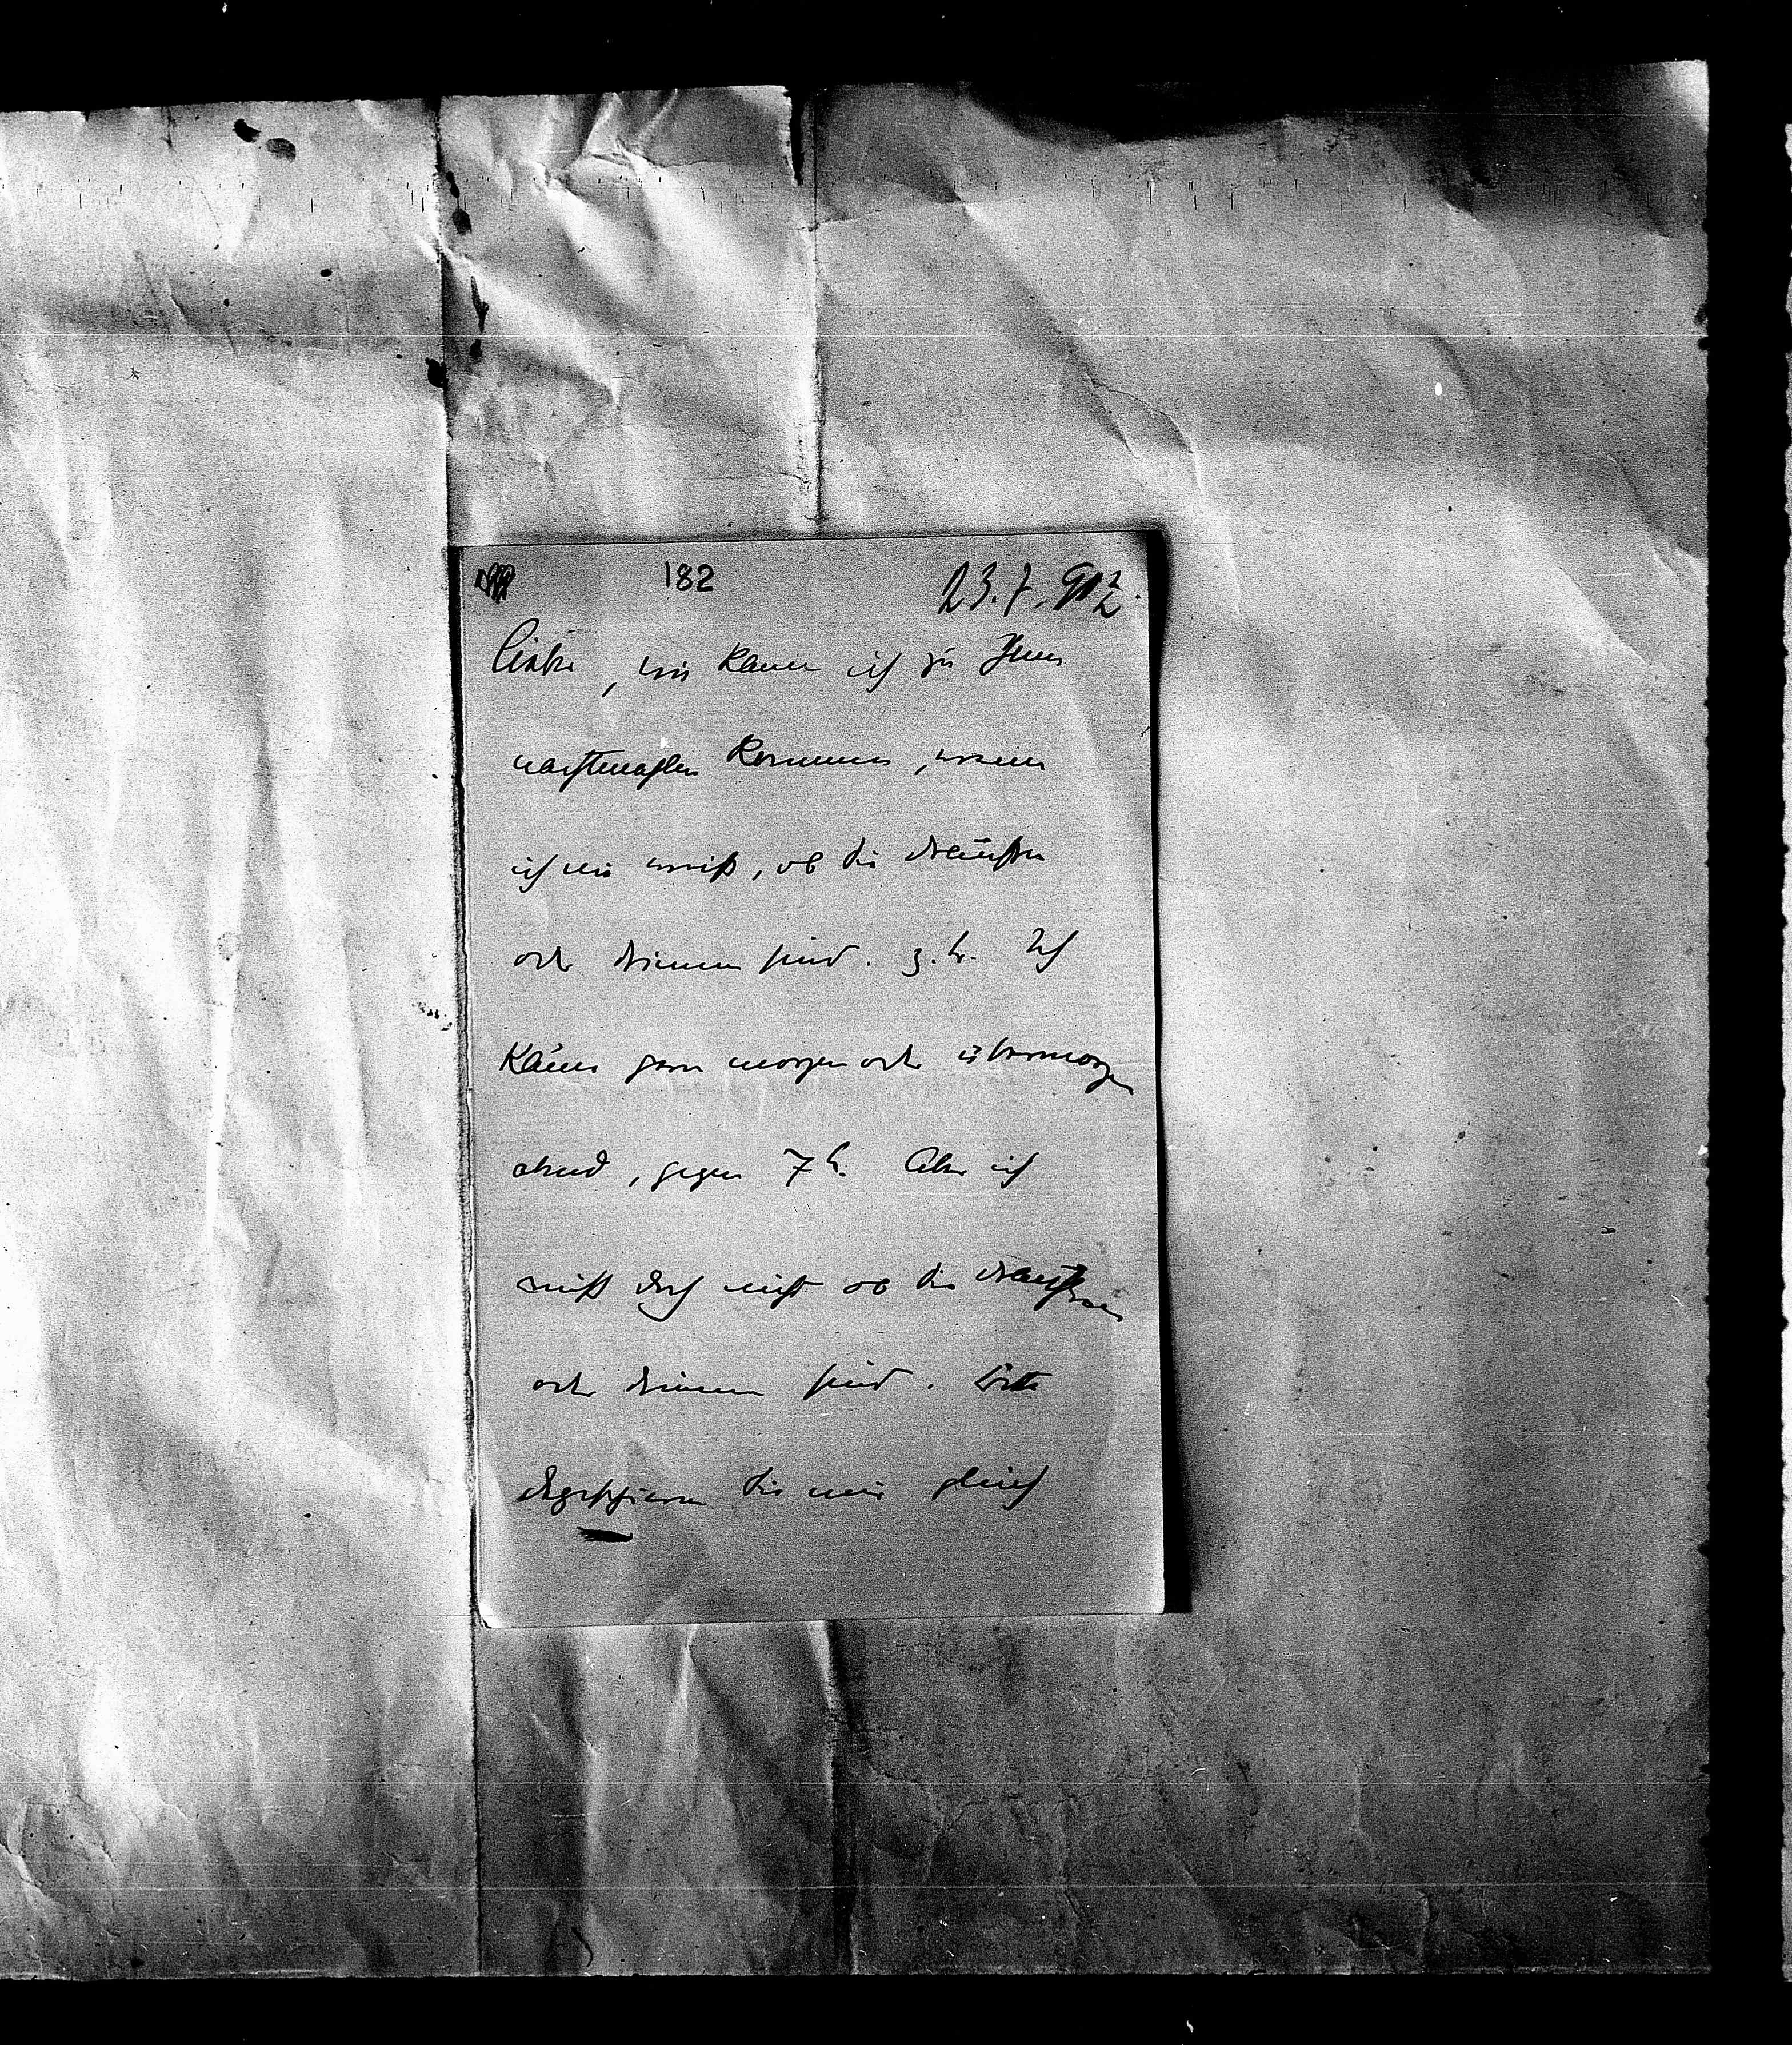 182
23.7.902.
Liebe, wie kann ich zu Ihnen
nachtmahlen kommen, wenn
ich nie weiß, ob Sie draußen
oder drinnen sind. z. b. Ich
käme gern morgen oder übermorgen
abend, gegen 7 h. Aber ich
weiß doch nicht ob Sie draußen
oder drinnen sind. Bitte
depeschieren Sie mir gleich